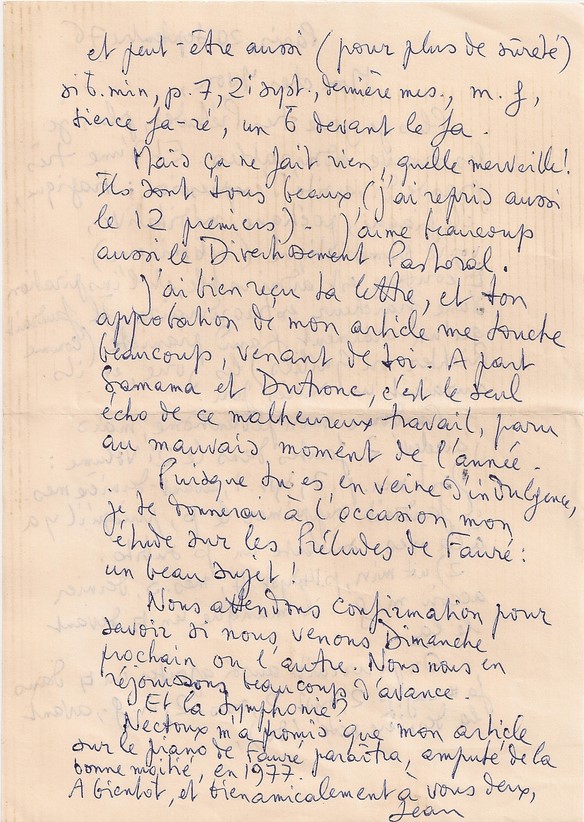 et peut-être aussi (pour plus de sûreté)
si b. min, p. 7, 2i syst., dernière mes., m. g,
tierce fa-ré, un b devant le fa.
Mais ça ne fait rien, quelle merveille!
Ils sont tous beaux (j'ai repris aussi
le 12 premiers). J'aime beaucoup
aussi le Divertissement Pastoral.
J'ai bien reçu ta lettre, et ton
approbation de mon article me touche
beaucoup, venant de toi. A part
Samama et Dutronc, c'est le seul
écho de ce malheureux travail, paru
au mauvais moment de l'année.
Puisque tu es en veine d'indulgence,
je te donnerai à l'occasion mon
étude sur les Préludes de Fauré:
un beau sujet!
Nous attendons confirmation pour
savoir si nous venons Dimanche
prochain ou l'autre. Nous nous en
réjouissons beaucoup d'avance.
Et la Symphonie?
Nectoux m'a promis que mon article
sur le piano de Fauré paraîtra, amputé de la
bonne moitié, en 1977.
A bientôt, et bien amicalement à vous deux,
Jean